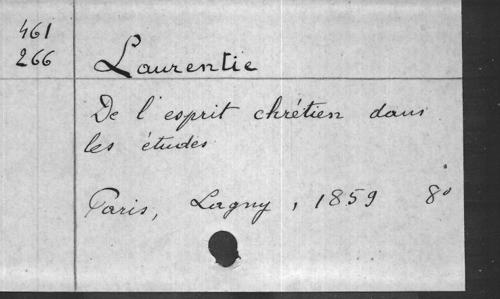 461
266
Laurentie
De l'esprit chrétien dans
les études
Paris, Lagny, 1859 8°